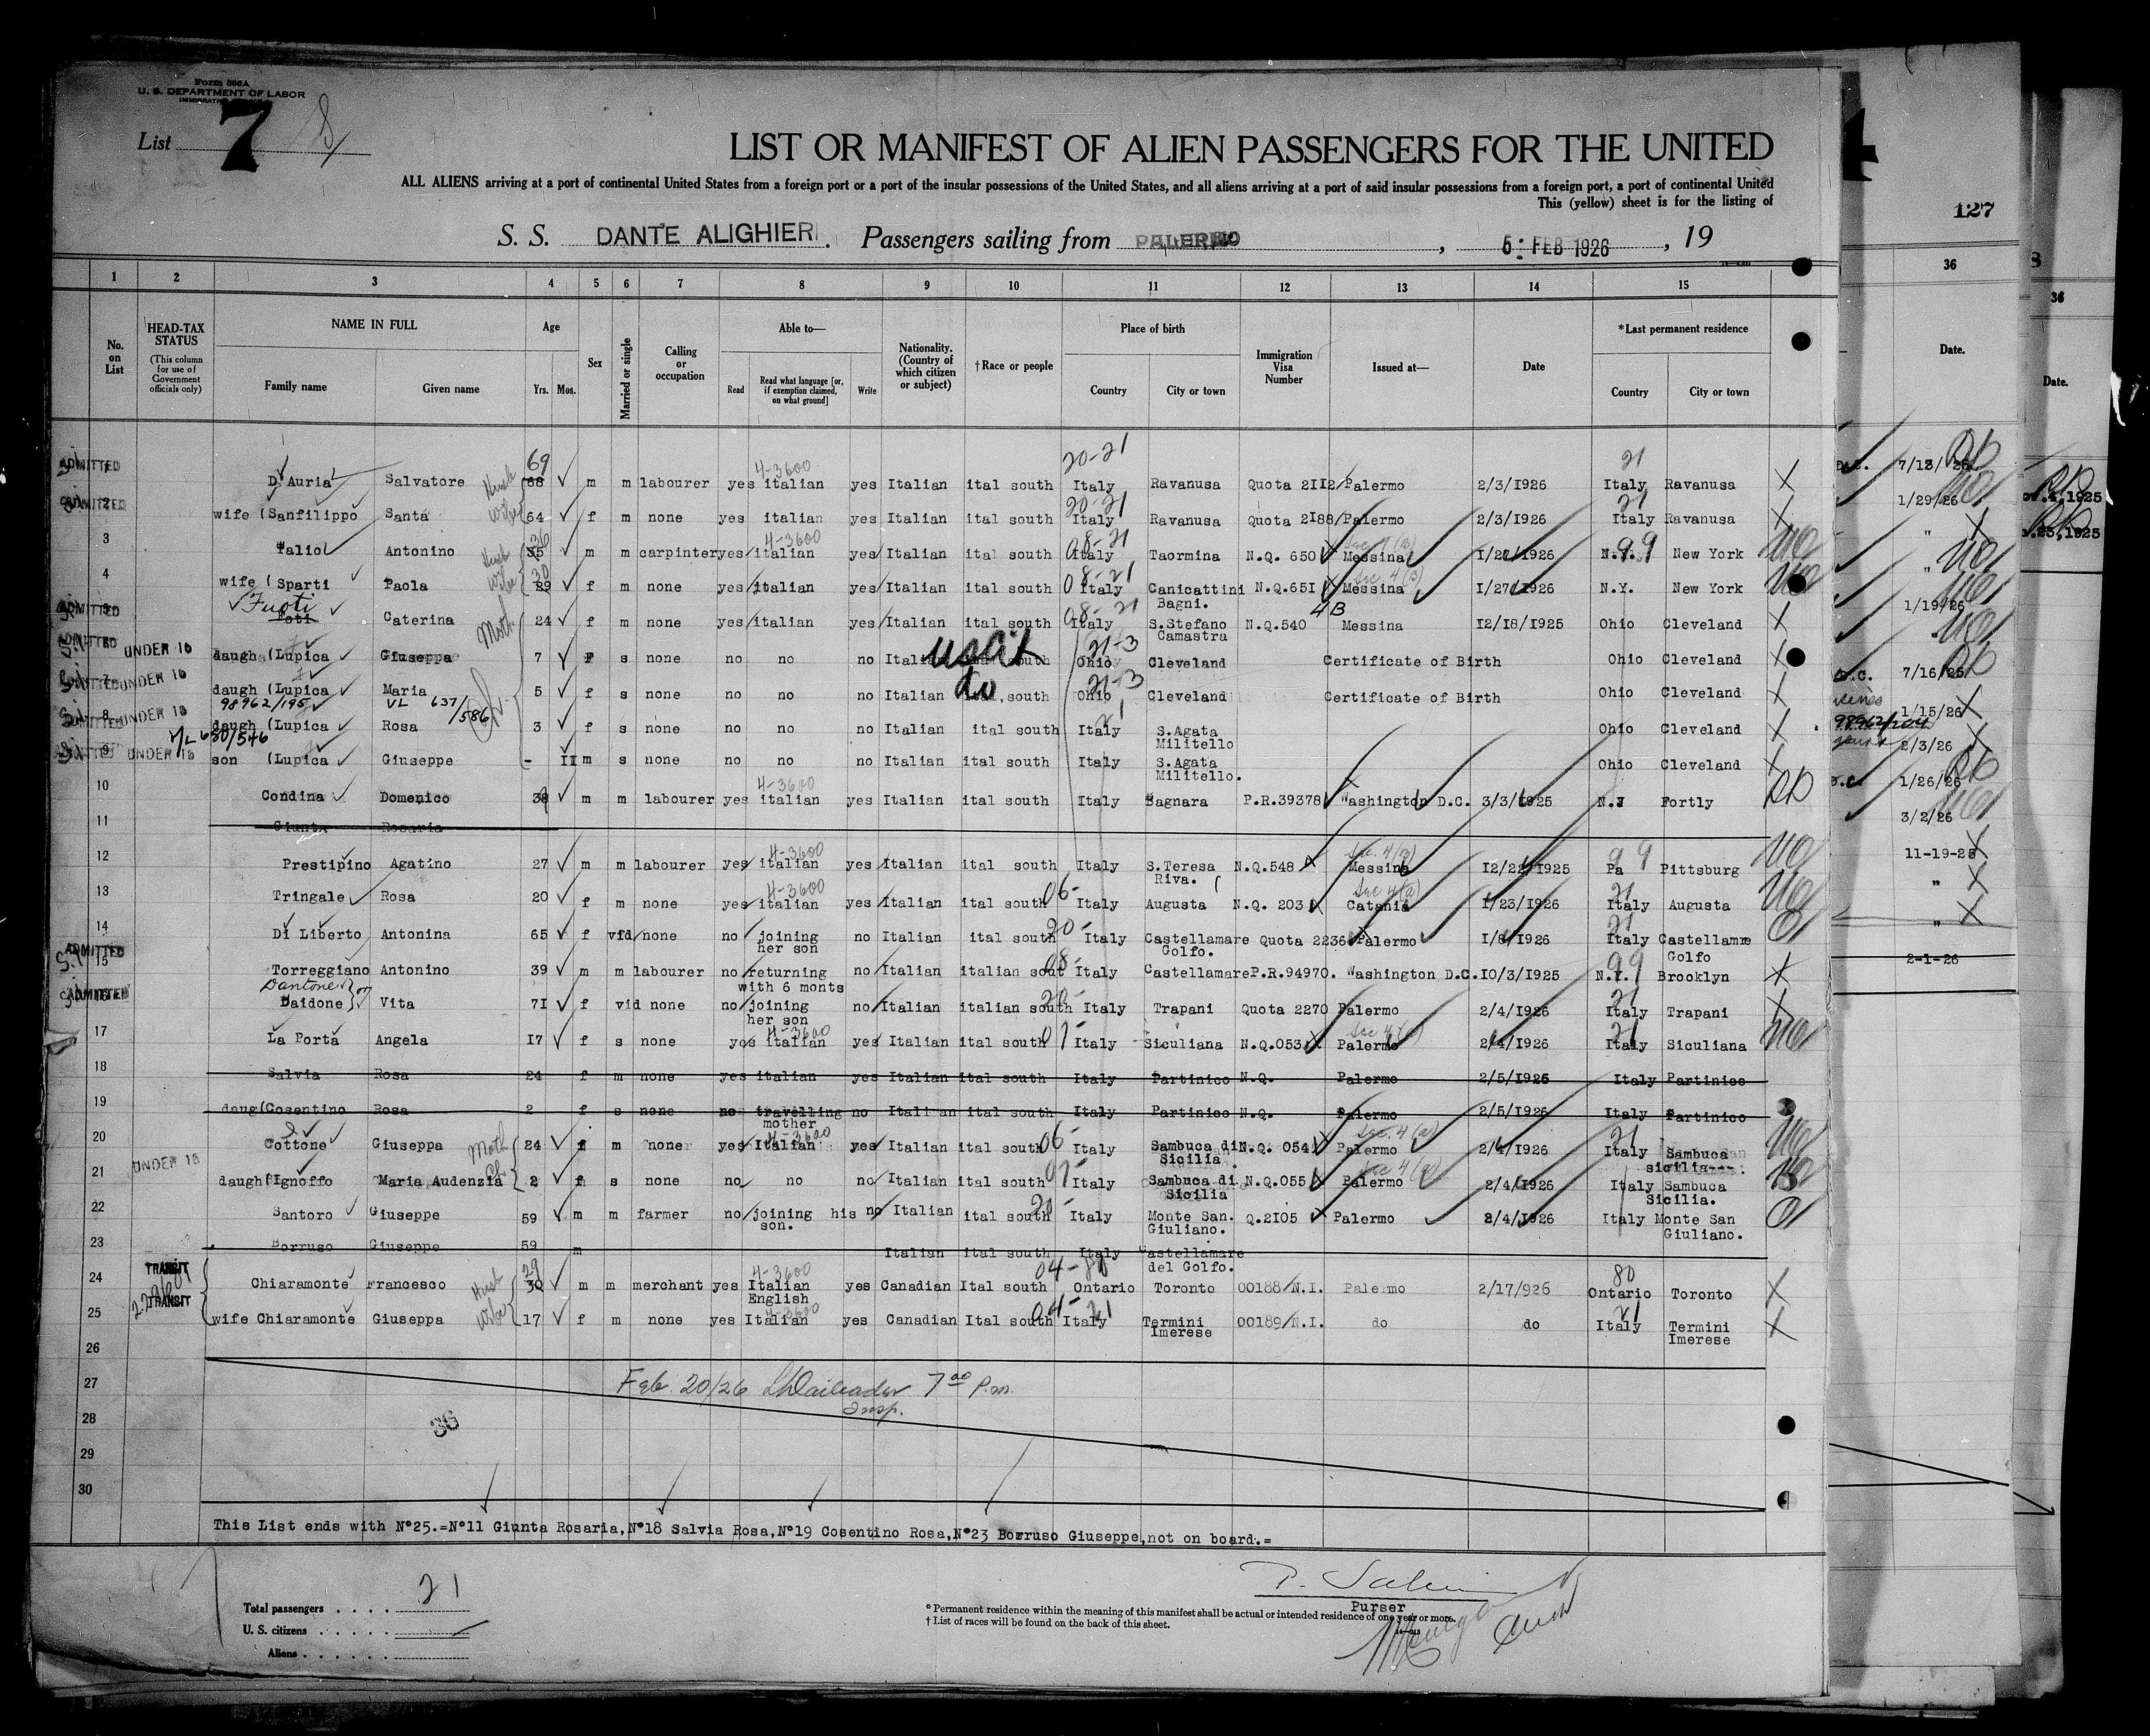 Form 500A
U. S. DEPARTMENT OF LABOR
List 7
LIST OR MANIFEST OF ALIEN PASSENGERS FOR THE UNITED
ALL ALIENS arriving at a port of continental United States from a foreign port or a port of the insular possessions of the United States, and all aliens arriving at a port of said insular possessions from a foreign port, a port of continental United
This (yellow) sheet is for the listing of
127
S. S. DANTE ALIGHIERI. Passengers sailing from PALERMO, 5: FEB 1926, 19
1 2 3 4 5 6 7 8 9 10 11 12 13 14 15 36 36
No. on List
HEAD-TAX STATUS (This column for use of Government officials only)
NAME IN FULL Family name Given name
Age Yrs. Mos.
Sex
Married or single
Calling or occupation
Able to— Read Read what language [or, if exemption claimed, on what ground] Write
Nationality. (Country of which citizen or subject)
†Race or people
Place of birth Country City or town
Immigration Visa Number
Issued at—
Date
*Last permanent residence Country City or town
Date.
Date.
ADMITTED D'Auria Salvatore Husb 69 68 m m labourer yes 4-3600 italian yes Italian ital south 20-21 Italy Ravanusa Quota 2II2 Palermo 2/3/I926 21 Italy Ravanusa X
2 wife (Sanfilippo Santa Wife 64 f m none yes italian yes Italian ital south 20-21 Italy Ravanusa Quota 2I88 Palermo 2/3/I926 21 Italy Ravanusa X
3 Talio Antonino Husb 36 35 m m carpinter yes 4-3600 italian yes Italian ital south 08-21 Italy Taormina N.Q. 650 Messina I/27/I926 99 N.Y. New York
4 wife (Sparti Paola Wife 30 29 f m none yes italian yes Italian ital south 08-21 Italy Canicattini Bagni. N.Q.65I Sec 4(B) Messina I/27/I926 N.Y. New York
ADMITTED 5 Fuoti Foti Caterina Moth 24 f m none yes italian yes Italian ital south 08-21 Italy S.Stefano Camastra N.Q.540 4B Messina I2/I8/I925 Ohio Cleveland X
6 UNDER 16 daugh (Lupica Giuseppa 7 f s none no no no Italian ital south uscit 21-3 Ohio Cleveland Certificate of Birth Ohio Cleveland X
7 UNDER 16 daugh (Lupica Maria 5 f s none no no no Italian ital south do 21-3 Ohio Cleveland Certificate of Birth Ohio Cleveland X
98962/195 VL 637/586
8 UNDER 16 daugh (Lupica Rosa 3 f s none no no no Italian ital south 21 Italy S.Agata Militello Ohio Cleveland X
V/L 680/546
ADMITTED 9 UNDER 16 son (Lupica Giuseppe - II m s none no no no Italian ital south Italy S.Agata Militello. Ohio Cleveland X
10 Condina Domenico 38 m m labourer yes 4-3600 italian yes Italian ital south Italy Bagnara P.R.39378 Washington D.C. 3/3/I925 N.J Fortly
11 Giunta Rosaria
12 Prestipino Agatino 27 m m labourer yes 4-3600 italian yes Italian ital south Italy S.Teresa Riva. N.Q.548 Sec. 4(B) Messina I2/22/I925 99 Pa Pittsburg
13 Tringale Rosa 20 f m none yes 4-3600 italian yes Italian ital south 06- Italy Augusta N.Q. 203 Sec 4(a) Catania I/23/I926 21 Italy Augusta
14 Di Liberto Antonina 65 f vid none no joining her son no Italian ital south 20- Italy Castellamare Golfo. Quota 2236 Palermo I/8/I926 21 Italy Castellamre Golfo
ADMITTED 15 Torreggiano Antonino 39 m m labourer no returning with 6 monts no Italian italian sout 08- Italy Castellamare P.R.94970. Washington D.C. I0/3/I925 99 N.Y. Brooklyn X
ADMITTED 16 Dantone or Daidone Vita 7I f vid none no joining her son no Italian italian south 20- Italy Trapani Quota 2270 Palermo 2/4/I926 21 Italy Trapani X
17 La Porta Angela I7 f s none yes 4-3600 italian yes Italian ital south 07 Italy Siculiana N.Q.053 Palermo 2/4/I926 21 Italy Siculiana
18 Salvia Rosa 24 f m none yes italian yes Italian ital south Italy Partinico N.Q. Palermo 2/5/I926 Italy Partinico
19 daug(Cosentino Rosa 2 f s none no travelling mother no Italian ital south Italy Partinico N.Q. Palermo 2/5/I926 Italy Partinico
20 Cottone Giuseppa Moth 24 f m none yes 4-3600 Italian yes Italian ital south 06- Italy Sambuca di Sicilia. N.Q. 054 Sec. 4(a) Palermo 2/4/I926 21 Italy Sambuca sicilia---.
21 UNDER 16 daugh(Ignoffo Maria Audenzia Ch 2 f s none no no no Italian ital south 07- Italy Sambuca di Sicilia N.Q.055 Sec 4(a) Palermo 2/4/I926 Italy Sambuca Sicilia.
22 Santoro Giuseppe 59 m m farmer no joining his son. no Italian ital south 20- Italy Monte San. Giuliano. Q.2I05 Palermo 2/4/I926 Italy Monte San Giuliano.
23 Borruso Giuseppe 59 m Italian ital south Italy Castellamare del Golfo.
24 TRANSIT Chiaramonte Francesco Husb 29 30 m m merchant yes 4-3600 Italian English yes Canadian Ital south 04-80 Ontario Toronto 00188/N.I. Palermo 2/17/926 80 Ontario Toronto X
25 TRANSIT wife Chiaramonte Giuseppa Wife 17 f m none yes 4-3600 Italian yes Canadian Ital south 04-21 Italy Termini Imerese 00189/N.I. do do 21 Italy Termini Imerese X
26
27 Feb. 20/26 7 00 P.m.
Insp.
28
36
29
30
This List ends with N°25.=N°11 Giunta Rosaria,N°18 Salvia Rosa,N°19 Cosentino Rosa,N°23 Borruso Giuseppe,not on board.=
Total passengers . . . . 21
U. S. citizens . . . . .
Aliens . . . . . .
Purser
* Permanent residence within the meaning of this manifest shall be actual or intended residence of one year or more.
† List of races will be found on the back of this sheet.
7/13/26
1/29/26
"
"
1/19/26
D.C. 7/16/25
1/15/26
98962/204
2/3/26
D.C. 1/26/26
3/2/26
11-19-25
"
"
2-1-26
.4,1925
.23,1925